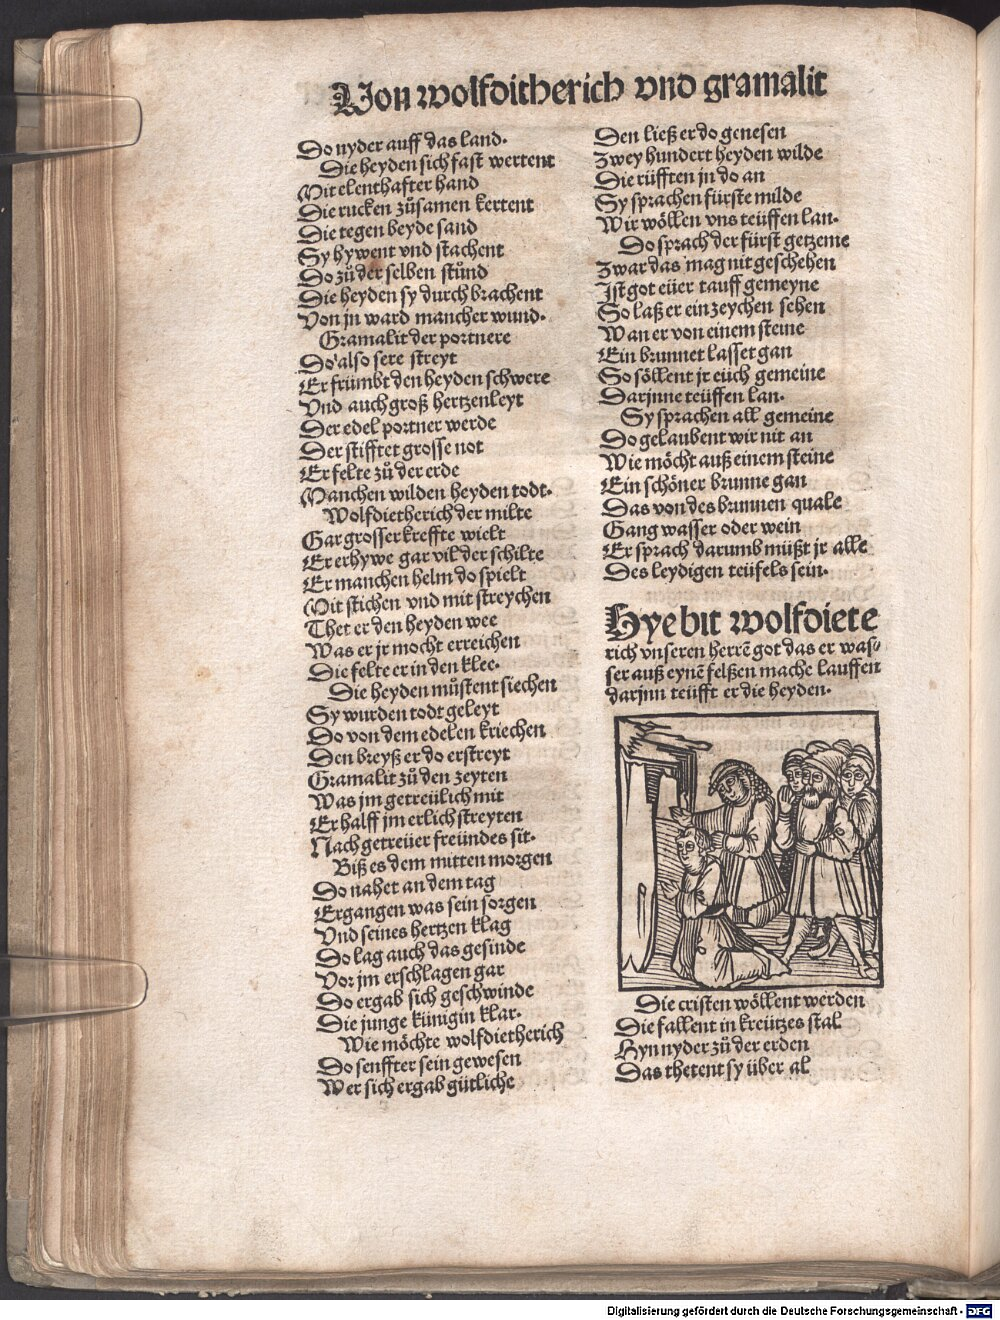 Von wolfditherich vnd gramalit
Do nyder auff das land.
Die heyden sich fast wertent
Mit elenthafter hand
Die rucken zůsamen kertent
Die tegen beyde sand
Sy hywent vnd stachent
Do zů der selben stůnd
Die heyden sy durch brachent
Von jn ward mancher wund.
Gramalit der portnere
Do also sere streyt
Er frümbt den heyden schwere
Vnd auch groß hertzenleyt
Der edel portner werde
Der stifftet grosse not
Er felte zů der erde
Manchen wilden heyden todt.
Wolfdietherich der milte
Gar grosser kreffte wielt
Er erhywe gar vil der schilte
Er manchen helm do spielt
Mit stichen vnd mit streychen
Thet er den heyden wee
Was er jr mocht erreichen
Die felte er in den klee.
Die heyden můstent siechen
Sy wurden todt geleyt
Do von dem edelen kriechen
Den breyß er do erstreyt
Gramalit zů den zeyten
Was jm getreülich mit
Er halff jm erlich streyten
Nach getreüer freündes sit.
Biß es dem mitten morgen
Do nahet an dem tag
Ergangen was sein sorgen
Vnd seines hertzen klag
Do lag auch das gesinde
Vor jm erschlagen gar
Do ergab sich geschwinde
Die junge künigin klar.
Wie möchte wolfdietherich
Do senffter sein gewesen
Wer sich ergab gütliche
Den ließ er do genesen
Zwey hundert heyden wilde
Die rüfften jn do an
Sy sprachen fürste milde
Wir wöllen vns teüffen lan.
Do sprach der fürst getzeme
Zwar das mag nit geschehen
Ist got eüer tauff gemeyne
So laß er ein zeychen sehen
Wan er von einem steine
Ein brunnet lasset gan
So söllent jr euch gemeine
Darjnne teüffen lan.
Sy sprachen all gemeine
Do gelaubent wir nit an
Wie möcht auß einem steine
Ein schöner brunne gan
Das von des brunnen quale
Gang wasser oder wein
Er sprach darumb müßt jr alle
Des leydigen teüfels sein.
Hye bit wolfdiete
rich vnseren herrē got das er was⸗
ser auß eynē felßen mache lauffen
darjnn teüfft er die heyden.
Die cristen wöllent werden
Die fallent in kreützes stal
Hyn nyder zů der erden
Das thetent sy über al
Digitalisierung gefördert durch die Deutsche Forschungsgemeinschaft - DFG